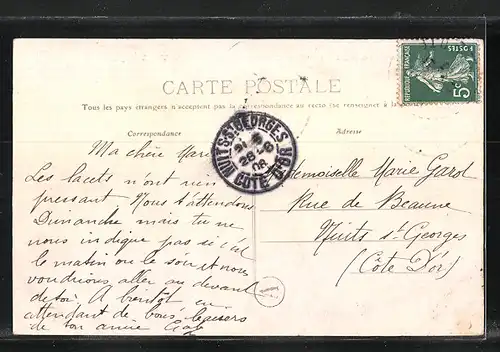 CARTE POSTALE
Tous les pays étrangers n'acceptent pas la correspondance au recto (se renseigner à la
Correspondance
Adresse
RÉPUBLIQUE FRANÇAISE
POSTES
5c
NUITS-S-GEORGES
28-8
08
COTE D'OR
Ma chère Marie
Les lacets n'ont rien
pressant Nous t'attendons
Dimanche mais tu ne
nous indique pas si c'est
le matin ou le soir et nous
voudrions aller au devant
de toi. A bientôt en
attendant de bons baisers
de ton amie
Mademoiselle Marie Garol
Rue de Beaune
Nuits st-Georges
(Côte d'Or)